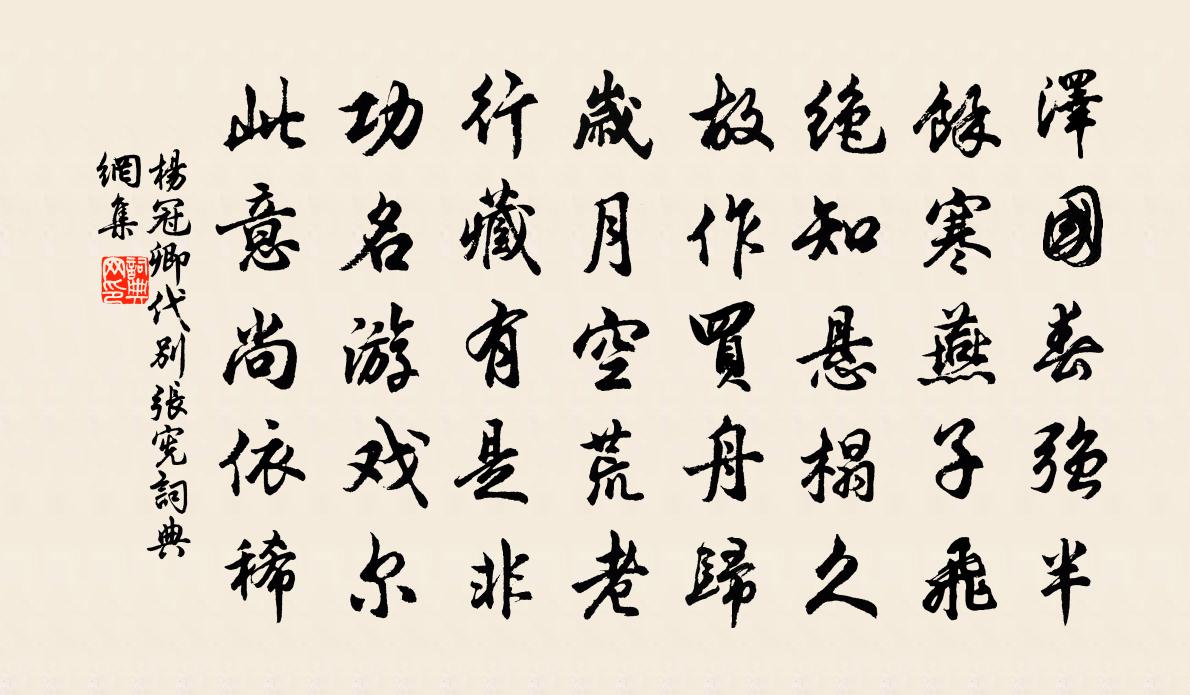 澤國春強半
餘寒燕子飛
絶知悬榻久
故作買舟歸
歲月空荒老
行藏有是非
功名游戏尔
此意尚依稀
楊冠卿代别張宪詞典
網集
詞典
网印